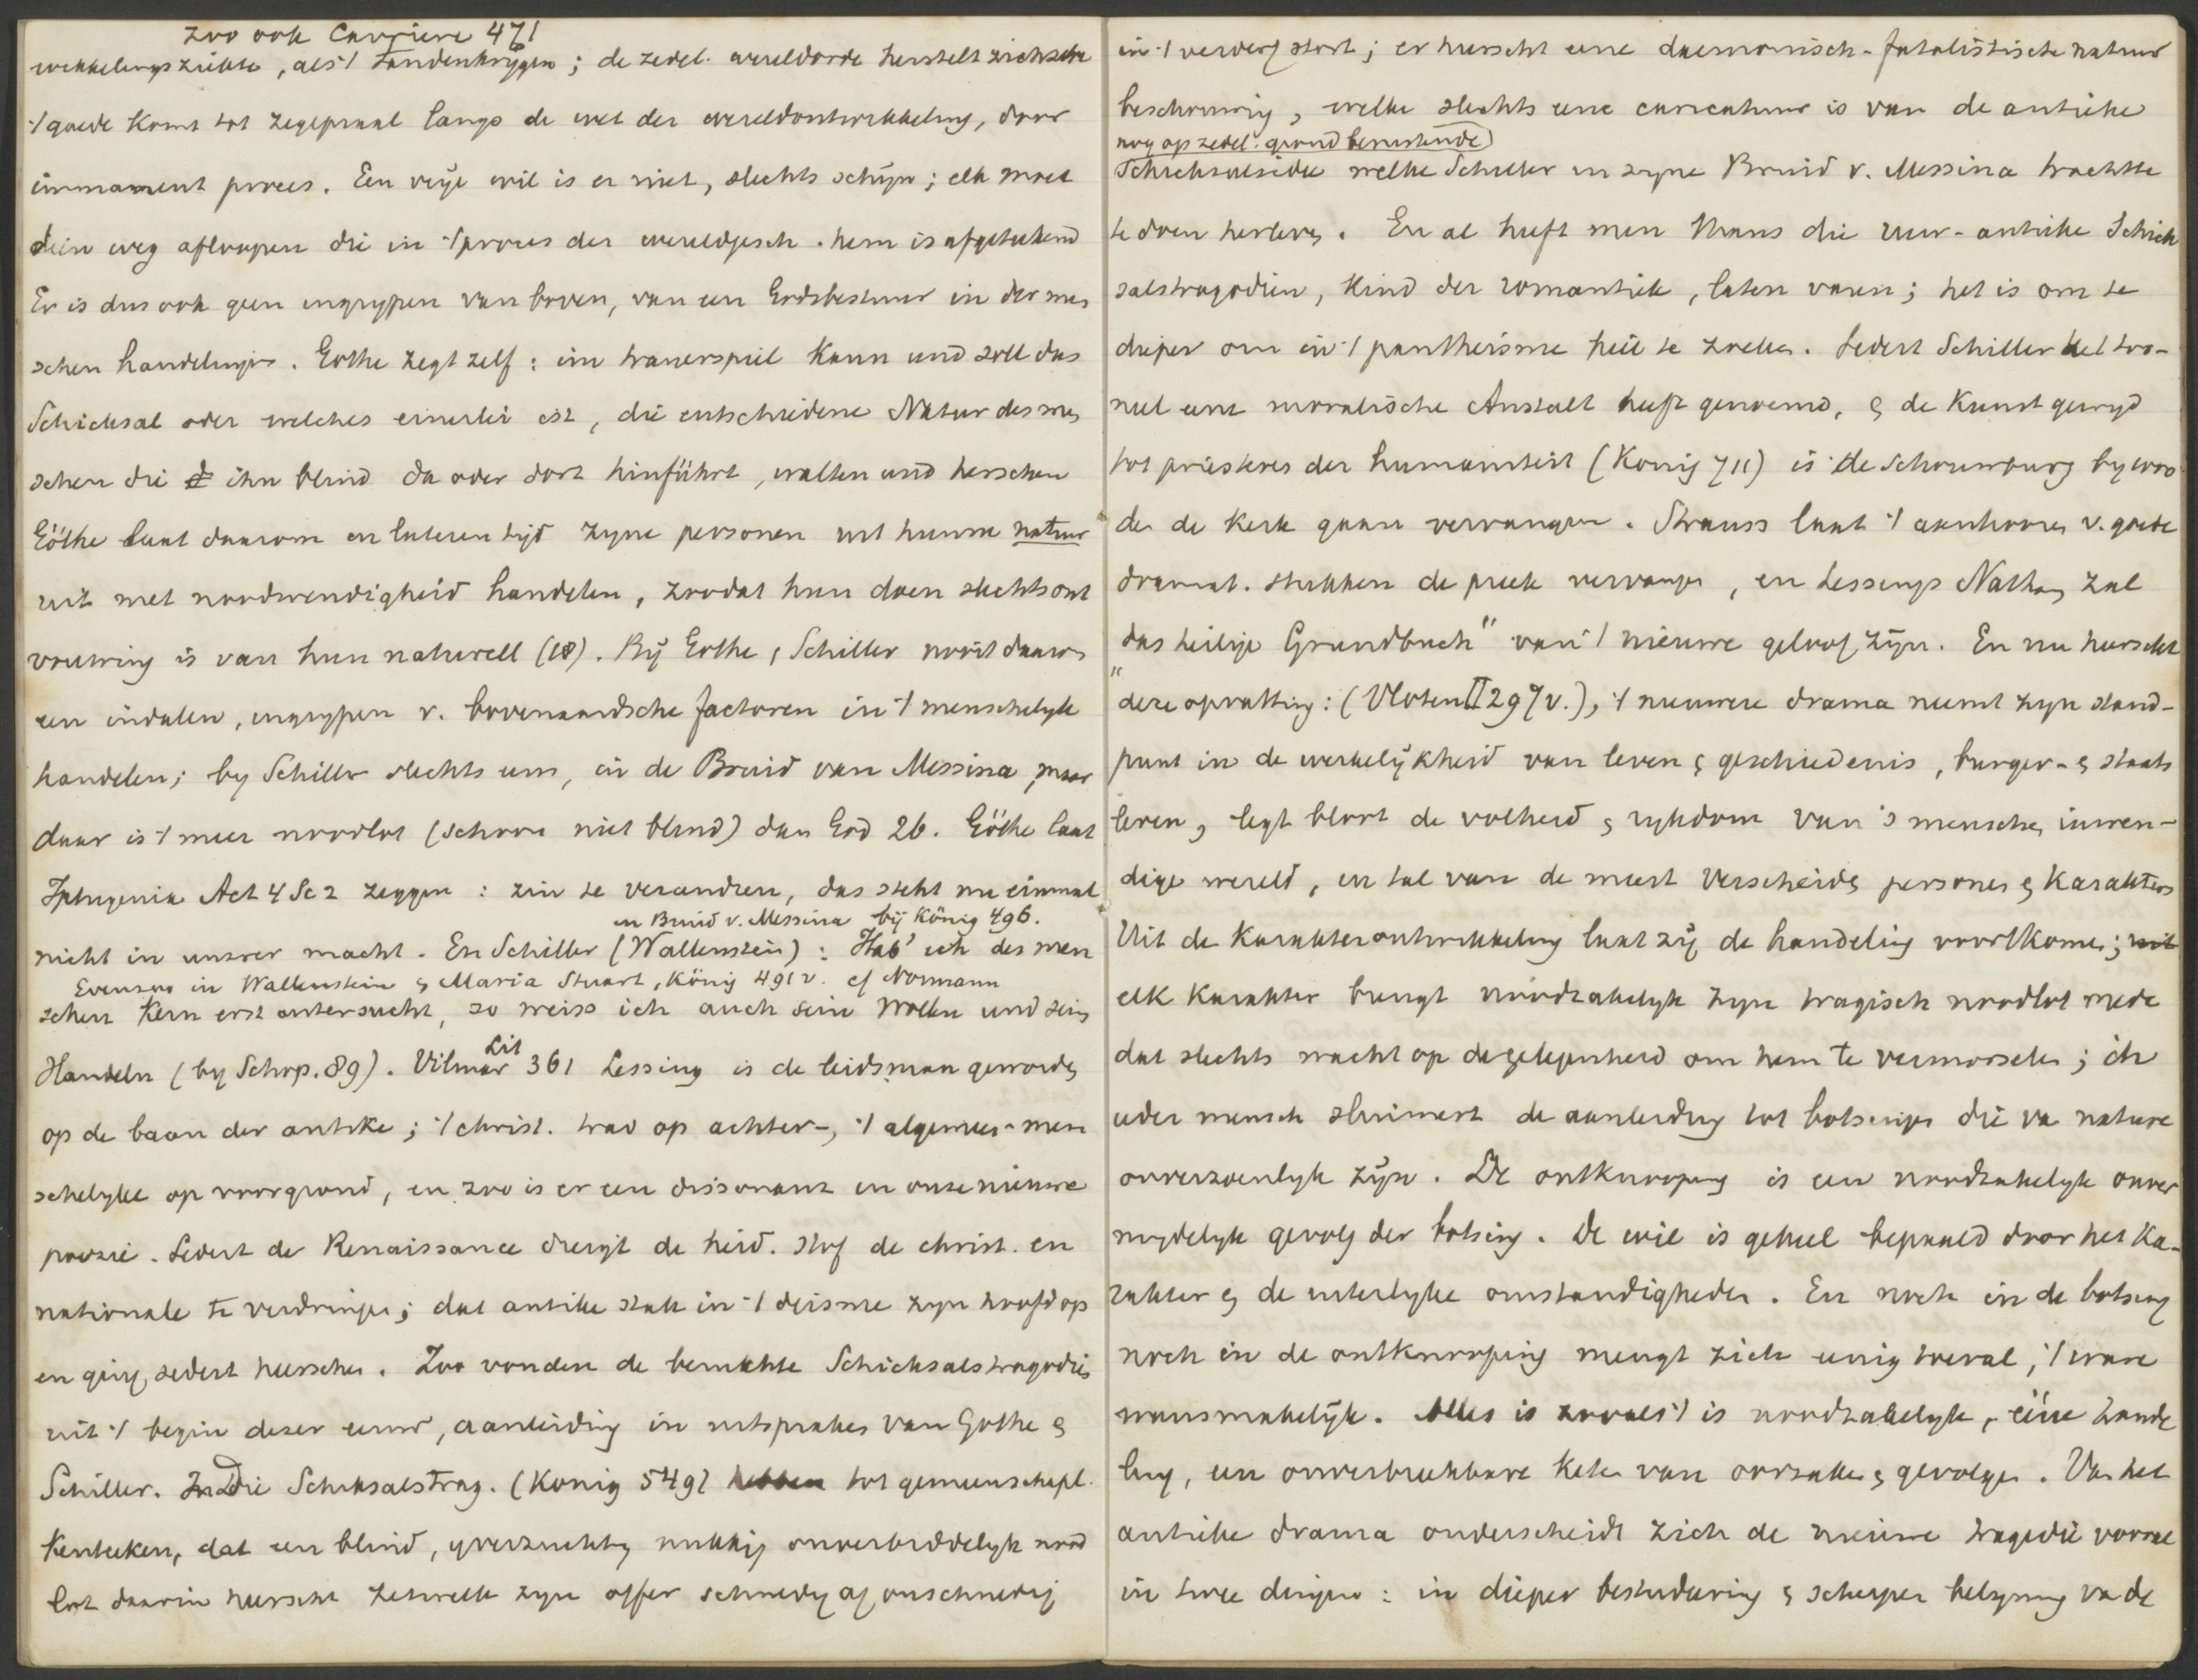 zoo ook Carriere 471
wikkelingsziekte, als 't Tandenkrijgen; de zedel. wereldorde herstelt zich
't goede komt tot zegepraal langs de wet der wereldontwikkeling, door
immanent proces. Een vrije wil is er niet, slechts schijn; elk moet
dien weg afloopen die in 't proces der wereldgesch. hem is afgetekend
Er is dus ook geen ingrypen van boven, van een Godsbestuur in der men
schen handelingen. Gothe zegt zelf: im trauerspiel kann und soll das
Schicksal oder welches einerlei ist, die entschiedene Natur des men
schen die ihn blind da oder dort hinführt, walten und herschen
Göthe laat daarom en lateren tijd zyne personen uit hunne natuur
uit met noodwendigheid handelen, zoodat hun doen slechts ont
vouwing is van hun naturell (18). Bij Gothe, Schiller nooit daarom
een indalen, ingrypen v. bovenaardsche factoren in 't menschelyk
handelen; by Schiller slechts eens, in de Bruid van Messina, maar
daar is 't meer noodlot (schoon niet blind) dan God 26. Göthe laat
Iphigenia Act 4 Sc 2 zeggen: zin te veranderen, das steht nu einmal
en Bruid v. Messina bij König 496.
nicht in unsrer macht. En Schiller (Wallenstein): Hab' ich des men
Evenzoo in Wallenstein & Maria Stuart, König 491 v. cf Normann
schen Kern erst untersucht, so weiss ich auch sein Wollen und sein
Handeln (by Schrp. 89). Vilmar Lit 361 Lessing is de leidsman geworden
op de baan der antike; 't christ. trad op achter-, 't algemeen-men
schelyke op voorgrond, en zoo is er een dissonans in onze nieuwe
poezie. Sedert de Renaissance dreigt de heid. stof de christ. en
nationale te verdringen; dat antike stak in 't deisme zyn hoofd op
en ging sedert heerschen. Zoo vonden de beruchte Schicksalstragodies
uit 't begin dezer eeuw, aanleiding in uitspraken van Gothe &
Schiller. In die Schiksalstrag. (Konig 549) tot gemeenschapl.
Kenteeken, dat een blind, yverzuchtig nukkig onverbiddelyk nood
lot daarin heerscht hetwelk zyn offer schuldig of onschuldig
in 't verderf stort; er heerscht eene daemonisch-fatalistische natuur
beschouwing, welke slechts eene caricatuur is van de antieke
nog op zedel. grond berustende
Schicksalsidee welke Schiller in zyne Bruid v. Messina trachtte
te doen herleven. En al heeft men thans die zuur-antieke Schick
salstragodien, kind der romantiek, laten varen; het is om te
dieper om in 't pantheisme heil te zoeken. Sedert Schiller het too-
neel eene moralische Anstalt heeft genoemd, & de Kunst gewijd
tot priesteres der humaniteit (Konig 711) is de Schouwburg by woo
den de Kerk gaan vervangen. Strauss laat 't aanhooren v. goede
dramat. stukken de preek vervangen, en Lessings Nathan zal
"das heilige Grundbuch" van 't nieuwe geloof zijn. En nu heerscht
deze opvatting: (Vloten II 297 v.), 't nieuwere drama neemt zyn stand-
punt in de werkelijkheid van leven & geschiedenis, burger- & staats
leven, legt bloot de volheid & rykdom van 's menschen inwen-
dige wereld, en tal van de meest verscheiden personen & karakters
Uit de karakterontwikkeling laat zij de handeling voortkomen;
elk karakter brengt noodzakelyk zyn tragisch noodlot mede
dat slechts wacht op de gelegenheid om hem te vermorselen; in
ieder mensch sluimert de aanleiding tot botsingen die va nature
onverzoenlyk zijn. De ontknooping is een noodzakelyk onver
mydelyk gevolg der botsing. De wil is geheel bepaald door het ka-
rakter & de uiterlyke omstandigheden. En noch in de botsing
noch in de ontknooping mengt zich eenig toeval, 't ware
wansmakelijk. Alles is zooals 't is noodzakelyk, ééne hande
ling, een onverbreekbare keten van oorzaken & gevolgen. Van het
antieke drama onderscheidt zich de nieuwe tragedie vooral
in twee dingen: in dieper bestudeering & scherper belyning va de